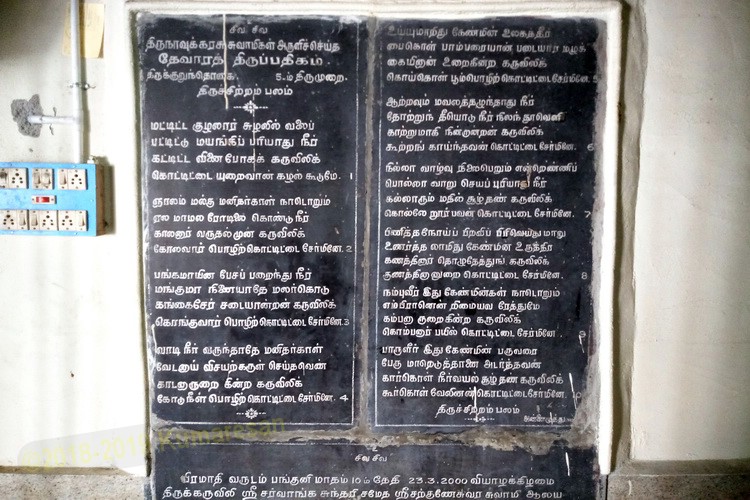 சிவ சிவ
திருநாவுக்கரசு சுவாமிகள் அருளிச்செய்த
தேவாரத் திருப்பதிகம்
திருக்குறுந்தொகை 5-ம் திருமுறை
திருச்சிற்றம் பலம்
மட்டிட்ட குழலார் சுழலில் வலைப்
பட்டிட்டு மயங்கிப் பரியாது நீர்
கட்டிட்ட வினை போகக் கருவிலிக்
கொட்டிட்டை யுறைவான் கழல் கூடுமே. 1
ஞாலம் மல்கு மனிதர்காள் நாடொறும்
ஏல மாமல ரோடிலை கொண்டு நீர்
காலனார் வருதல்முன் கருவிலிக்
கோலவார் பொழிற்கொட்டிட்டை சேர்மினே. 2
பங்கமாயின பேசப் பறைந்து நீர்
மங்குமா நினையாதே மலர்கொடு
கங்கைசேர் சடையான்றன் கருவிலிக்
கொங்குவார் பொழிற்கொட்டிட்டை சேர்மினே. 3
வாடி நீர் வருந்தாதே மனிதர்காள்
வேடனாய் விசயற்கருள் செய்தவெண்
காடனாருறை கின்ற கருவிலிக்
கோடுநீள் பொழிற்கொட்டிட்டை சேர்மினே. 4
உய்யுமாறிது கேண்மின் உலகத்தீர்
பைகொள் பாம்பரையான் படையார் மழுக்
கையினான் உறைகின்ற கருவிலிக்
கொய்கொள் பூம்பொழிற்கொட்டிட்டை சேர்மினே. 5
ஆற்றவும் மவலத்தழுந்தாது நீர்
தோற்றுந் தீயொடு நீர் நிலந் தூவெளி
காற்றுமாகி நின்றான்றன் கருவிலிக்
கூற்றங் காய்ந்தவன் கொட்டிட்டை சேர்மினே. 6
நில்லா வாழ்வு நிலைபெறும் என்றெண்ணிப்
பொல்லா வாறு செயப் புரியாது நீர்
கல்லாரும் மதில் சூழ்தண் கருவிலிக்
கொல்லே றூர்பவன் கொட்டிட்டை சேர்மினே. 7
பிணித்த நோய்ப் பிறவிப் பிரிவெய்து மாறு
உணர்த்த லாமிது கேண்மின் உருத்திர
கணத்தினார் தொழுதேத்துங் கருவிலிக்
குணத்தினானுறை கொட்டிட்டை சேர்மினே. 8
நம்புவீர் இது கேண்மின்கள் நாடொறும்
எம்பிரானென் றிமையவ ரேத்துமே
கம்பனா ருறைகின்ற கருவிலிக்
கொம்பனார் பயில் கொட்டிட்டை சேர்மினே. 9
பாருளீர் இது கேண்மின் பருவரை
பேரு மாறெடுத்தானை அடர்த்தவன்
கார்கொள் நீர்வயல் சூழ்தண் கருவிலிக்
கூர்கொள் வேலினன் கொட்டிட்டை சேர்மினே. 10
திருச்சிற்றம் பலம்
சிவ சிவ
விரமாதி வருடம் பங்குனி மாதம் 10ம் தேதி 23.3.2000 வியாழக்கிழமை
திருக்கருவிலி ஸ்ரீ சர்வாங்க சுந்தரி சமேத ஸ்ரீசற்குணேசுவர சுவாமி ஆலய